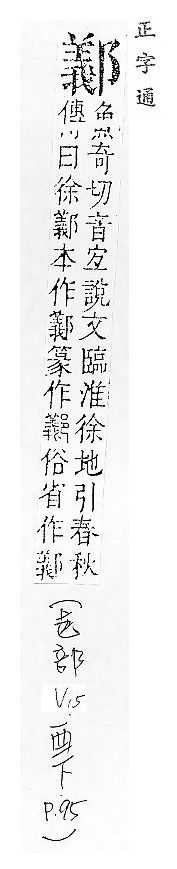 正字通
奇切音宜說文臨淮徐地引春秋
傳曰徐本作篆作俗省作
(邑部
V.15
酉下
P.95)